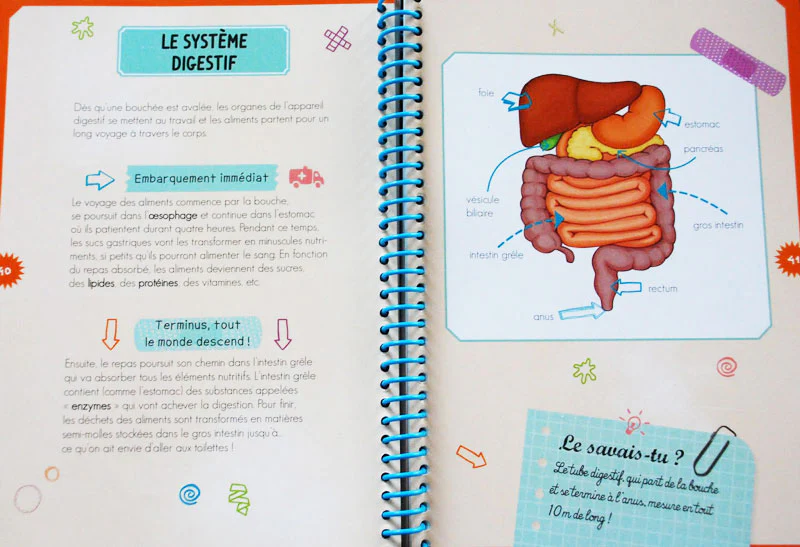 LE SYSTÈME
DIGESTIF
Dès qu'une bouchée est avalée, les organes de l'appareil
digestif se mettent au travail et les aliments partent pour un
long voyage à travers le corps.
Embarquement immédiat
Le voyage des aliments commence par la bouche,
se poursuit dans l'œsophage et continue dans l'estomac
où ils patientent durant quatre heures. Pendant ce temps,
les sucs gastriques vont les transformer en minuscules nutri-
ments, si petits qu'ils pourront alimenter le sang. En fonction
du repas absorbé, les aliments deviennent des sucres,
des lipides, des protéines, des vitamines, etc.
Terminus, tout
le monde descend !
Ensuite, le repas poursuit son chemin dans l'intestin grêle
qui va absorber tous les éléments nutritifs. L'intestin grêle
contient (comme l'estomac) des substances appelées
« enzymes » qui vont achever la digestion. Pour finir,
les déchets des aliments sont transformés en matières
semi-molles stockées dans le gros intestin jusqu'à...
ce qu'on ait envie d'aller aux toilettes !
40
foie
estomac
pancréas
vesicule
biliaire
gros intestin
intestin grêle
rectum
anus
41
Le savais-tu ?
Le tube digestif, qui part de la bouche
et se termine à l'anus, mesure en tout
10 m de long !